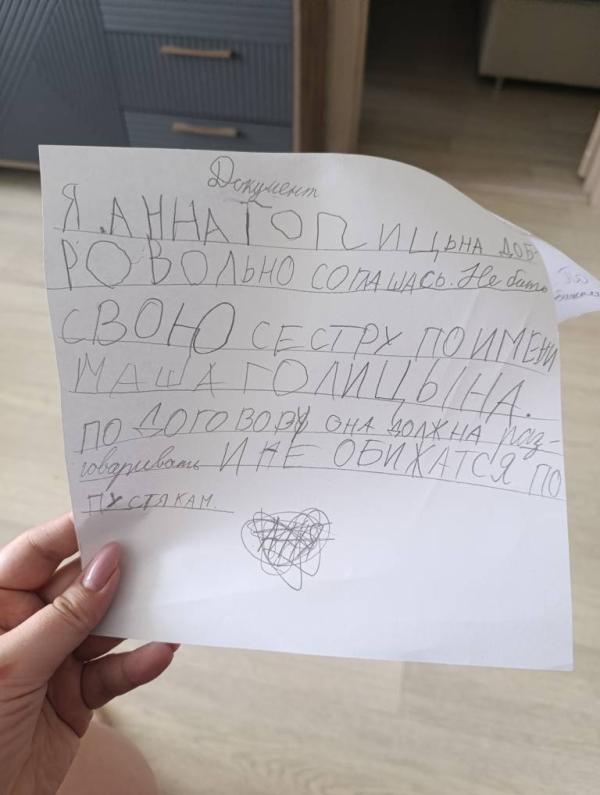 Документ
Я АННА ГОЛИЦЫНА ДОБ-
РОВОЛЬНО СОЛАШАСЬ. Не бить
СВОЮ СЕСТРУ ПО ИМЕНИ
МАША ГОЛИЦЫНА.
ПО ДОГОВОРУ ОНА ДОЛЖНА раз-
говаривать И НЕ ОБИЖАТСЯ ПО
ПУСТЯКАМ.